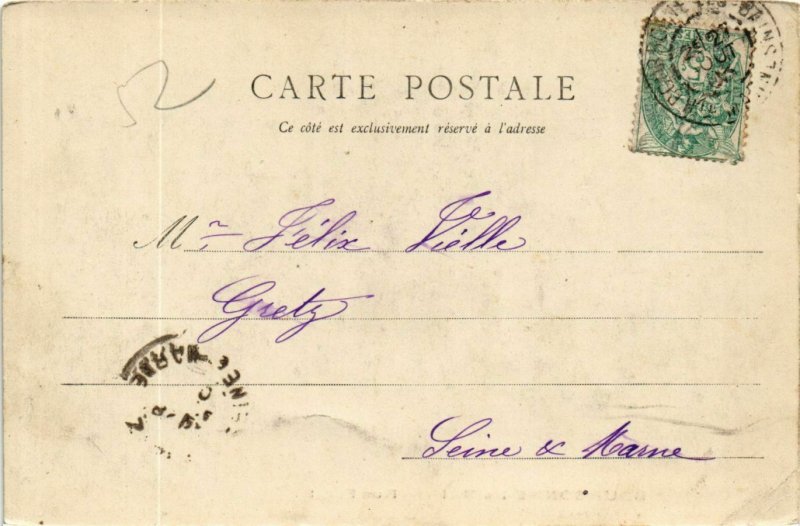 CARTE POSTALE
Ce côté est exclusivement réservé à l'adresse
Mr Félix Viélle
Gretz
Seine & Marne